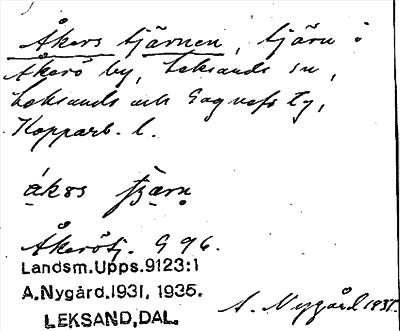 Åkers tjärnen, tjärn i
Åkerö by, Leksands sn,
Leksands och Gagnefs tg,
Kopparb. l.
Åkerötj. G 96.
Landsm.Upps.9123:1
A.Nygård.1931, 1935.
LEKSAND, DAL.
A. Nygård 1931.